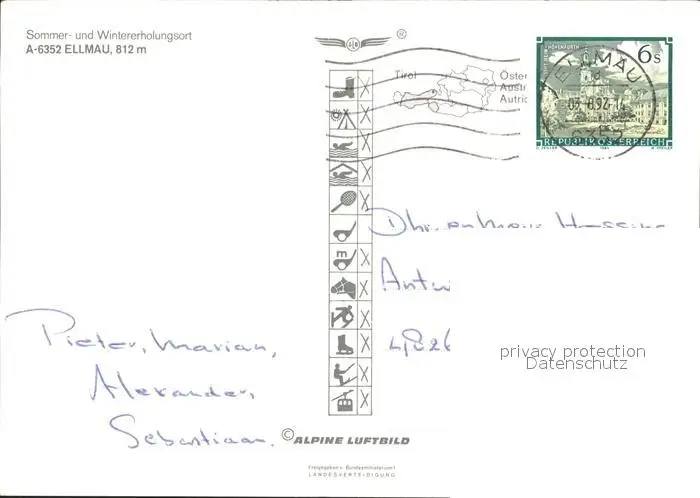 Sommer- und Wintererholungsort
A-6352 ELLMAU, 812 m
®
Tirol
Öster
Austr
Autric
ELLMAU
03.-8.92-14
6s
REPUBLIK ÖSTERREICH
m
Pieter, Marian,
Alexander,
Sebastiaan.
4826
privacy protection
Datenschutz
© ALPINE LUFTBILD
Freigegeben v. Bundesministerium f.
LANDESVERTEIDIGUNG